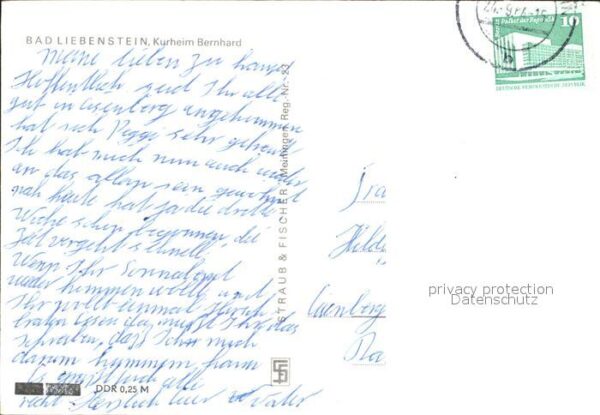 BAD LIEBENSTEIN, Kurheim Bernhard
Meine lieben zu hause
Hoffentlich seid Ihr alle
gut in Eisenberg angekommen
hat sich Peggi sehr gefreut
Ich hab mich nun auch wieder
an das allein sein gewöhnt
nah heute hat ja die dritte
Woche schon begonnen, die
Zeit vergeht schnell,
Wenn Ihr Sonnabend
wieder kommen wollt und
Ihr wollt einmal
braten essen da, müsst Ihr das
schreiben, das Ich mich
darum kümmern kann
Es grüsst euch alle
recht Herzlich euer Vater
DDR 0,25 M
STRAUB & FISCHER · Meiningen Reg.-Nr. 23
Berlin Palast der Republik
10
DEUTSCHE DEMOKRATISCHE REPUBLIK
b
Frau
Eisenberg
privacy protection
Datenschutz